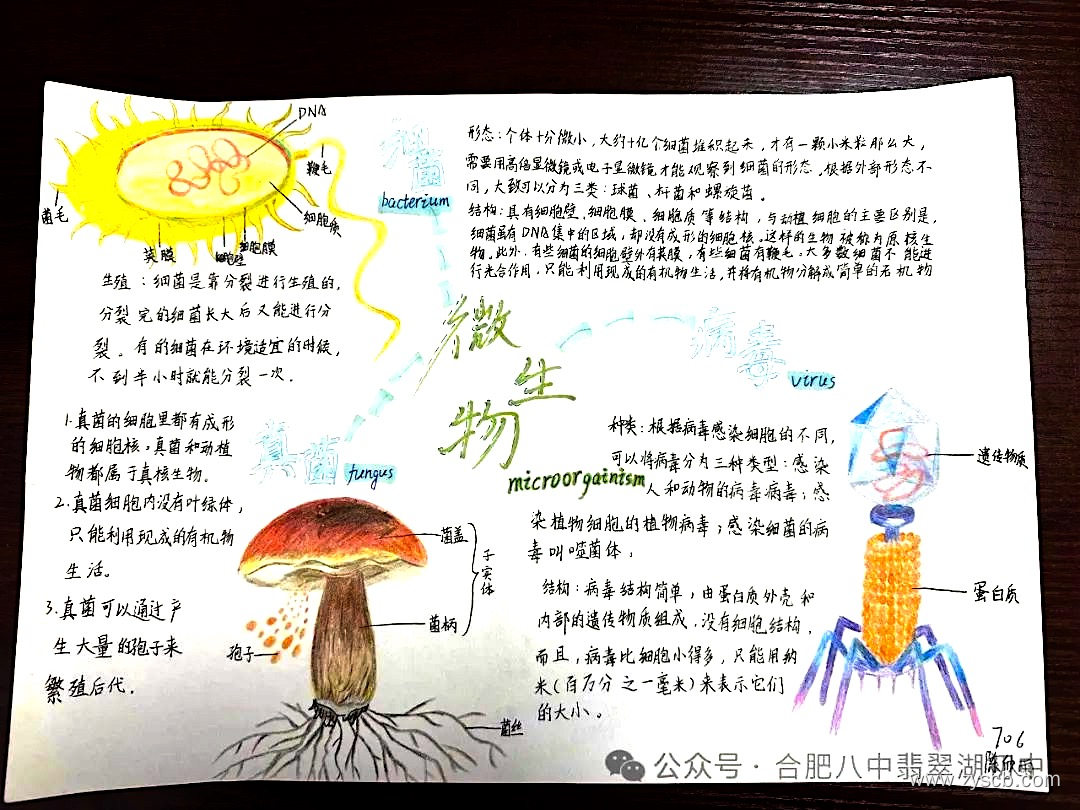 DNA
鞭毛
细胞质
菌毛
荚膜
细胞壁
细胞膜
细菌
bacterium
形态：个体十分微小，大约十亿个细菌堆积起来，才有一颗小米粒那么大，
需要用高倍显微镜或电子显微镜才能观察到细菌的形态。根据外部形态不
同，大致可以分为三类：球菌、杆菌和螺旋菌。
结构：具有细胞壁、细胞膜、细胞质等结构，与动植细胞的主要区别是，
细菌虽有DNA集中的区域，却没有成形的细胞核。这样的生物被称为原核生
物。此外，有些细菌的细胞壁外有荚膜，有些细菌有鞭毛。大多数细菌不能进
行光合作用，只能利用现成的有机物生活，并将有机物分解成简单的无机物
生殖：细菌是靠分裂进行生殖的，
分裂完的细菌长大后又能进行分
裂。有的细菌在环境适宜的时候，
不到半小时就能分裂一次。
微
生
物
microorgainism
病毒
virus
真菌
fungus
1.真菌的细胞里都有成形
的细胞核，真菌和动植
物都属于真核生物。
2.真菌细胞内没有叶绿体，
只能利用现成的有机物
生活。
3.真菌可以通过产
生大量的孢子来
繁殖后代.
菌盖
子实体
菌柄
孢子
菌丝
种类：根据病毒感染细胞的不同，
可以将病毒分为三种类型：感染
人和动物的病毒病毒；感
染植物细胞的植物病毒；感染细菌的病
毒叫噬菌体；
结构：病毒结构简单，由蛋白质外壳和
内部的遗传物质组成，没有细胞结构，
而且，病毒比细胞小得多，只能用纳
米（百万分之一毫米）来表示它们
的大小。
遗传物质
蛋白质
706
公众号·合肥八中翡翠湖
www.zyscb.com